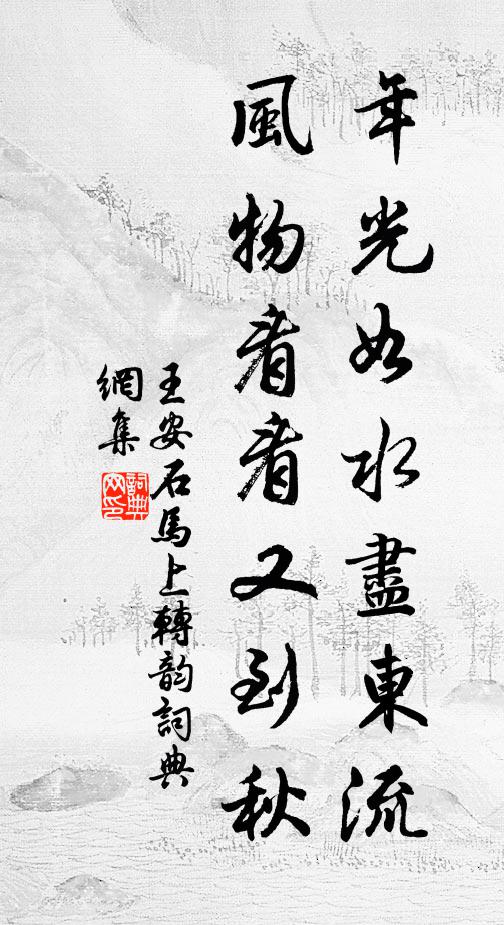 年光如水盡東流
風物看看又到秋
王安石馬上轉韵詞典
網集
詞典
网印